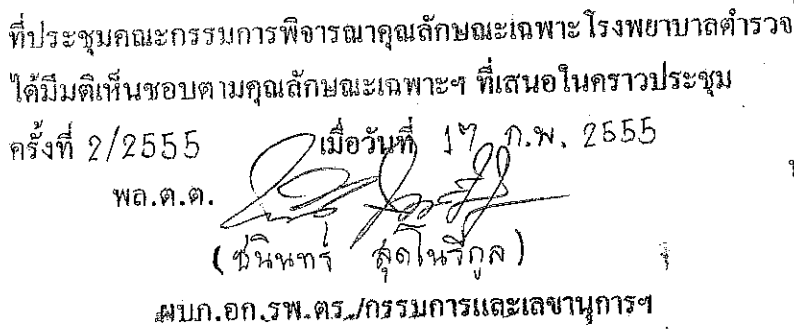 ที่ประชุมคณะกรรมการพิจารณาคุณลักษณะเฉพาะ โรงพยาบาลตำรวจ
ได้มีมติเห็นชอบตามคุณลักษณะเฉพาะฯ ที่เสนอในคราวประชุม
ครั้งที่ 2/2555 เมื่อวันที่ 17 ก.พ. 2555
พล.ต.ต.
(ชนินทร์
ผบก.อก.รพ.ตร./กรรมการและเลขานุการฯ